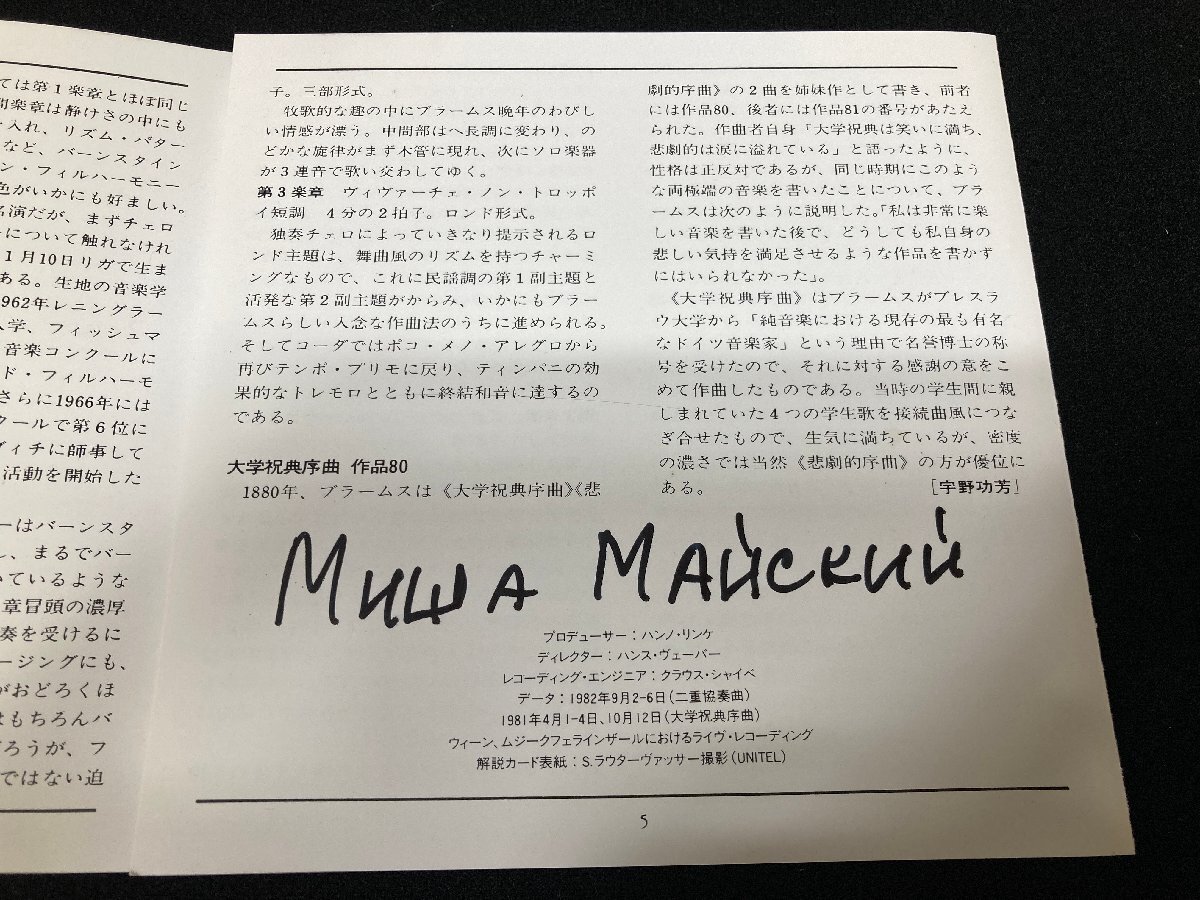 ては第1楽章とほぼ同じ
間楽章は静けさの中にも
入れ、リズム・パター
など、バーンスタイン
ン・フィルハーモニー
色がいかにも好ましい。
名演だが、まずチェロ
について触れなけれ
1月10日リガで生ま
ある。生地の音楽学
1962年レニングラー
入学、フィッシュマ
音楽コンクールに
ド・フィルハーモ
さらに1966年には
クールで第6位に
ヴィチに師事して
活動を開始した
ーはバーンスタ
し、まるでバー
いているような
章冒頭の濃厚
奏を受けるに
ージングにも、
がおどろくほ
はもちろんバ
だろうが、フ
ではない迫
子。三部形式。
牧歌的な趣の中にブラームス晩年のわびし
い情感が漂う。中間部はヘ長調に変わり、の
どかな旋律がまず木管に現れ、次にソロ楽器
が3連音で歌い交わしてゆく。
第3楽章 ヴィヴァーチェ・ノン・トロッポ
イ短調 4分の2拍子。ロンド形式。
独奏チェロによっていきなり提示されるロ
ンド主題は、舞曲風のリズムを持つチャーミ
ングなもので、これに民謡調の第1副主題と
活発な第2副主題がからみ、いかにもブラー
ムスらしい入念な作曲法のうちに進められる。
そしてコーダではポコ・メノ・アレグロから
再びテンポ・プリモに戻り、ティンパニの効
果的なトレモロとともに終結和音に達するの
である。
大学祝典序曲 作品80
1880年、ブラームスは《大学祝典序曲》《悲
劇的序曲》の2曲を姉妹作として書き、前者
には作品80、後者には作品81の番号があたえ
られた。作曲者自身「大学祝典は笑いに満ち、
悲劇的は涙に溢れている」と語ったように、
性格は正反対であるが、同じ時期にこのよう
な両極端の音楽を書いたことについて、ブラ
ームスは次のように説明した。「私は非常に楽
しい音楽を書いた後で、どうしても私自身の
悲しい気持を満足させるような作品を書かず
にはいられなかった」。
《大学祝典序曲》はブラームスがブレスラ
ウ大学から「純音楽における現存の最も有名
なドイツ音楽家」という理由で名誉博士の称
号を受けたので、それに対する感謝の意をこ
めて作曲したものである。当時の学生間に親
しまれていた4つの学生歌を接続曲風につな
ぎ合せたもので、生気に満ちているが、密度
の濃さでは当然《悲劇的序曲》の方が優位に
ある。 [宇野功芳]
Миша Майский
プロデューサー：ハンノ・リンケ
ディレクター：ハンス・ヴェーバー
レコーディング・エンジニア：クラウス・シャイベ
データ：1982年9月2-6日(二重協奏曲)
1981年4月1-4日、10月12日(大学祝典序曲)
ウィーン、ムジークフェラインザールにおけるライヴ・レコーディング
解説カード表紙：S.ラウターヴァッサー撮影(UNITEL)
5